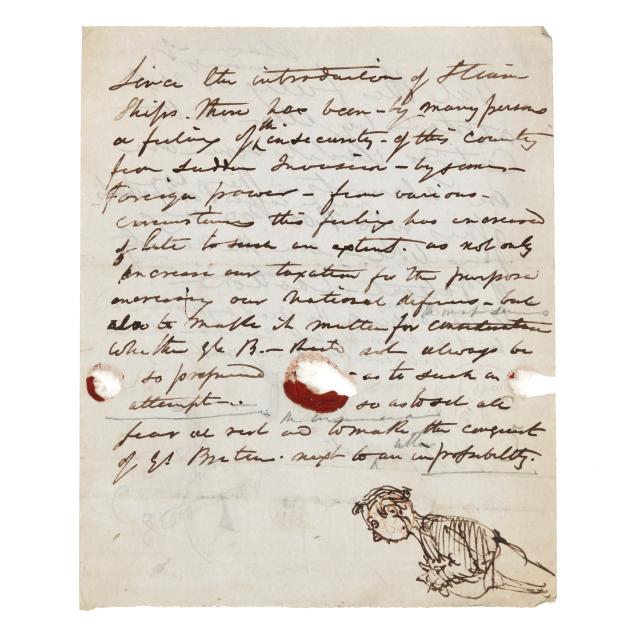 Since the introduction of Steam
Ships. There has been - by many persons
a feeling of the insecurity - of this Country
from Sudden Invasion - by some -
Foreign power - from various -
circumstances this feeling has increased
of late to such an extent. as not only
increase our taxation for the purpose
increasing our National defences - but
the most serious
also to make it matter for consideration
whether Gt B. - not always be
so prepared - as to such an
attempt - so as to set all
fear at rest and to make the conquest
of Gt Britain. next to an impossibility.